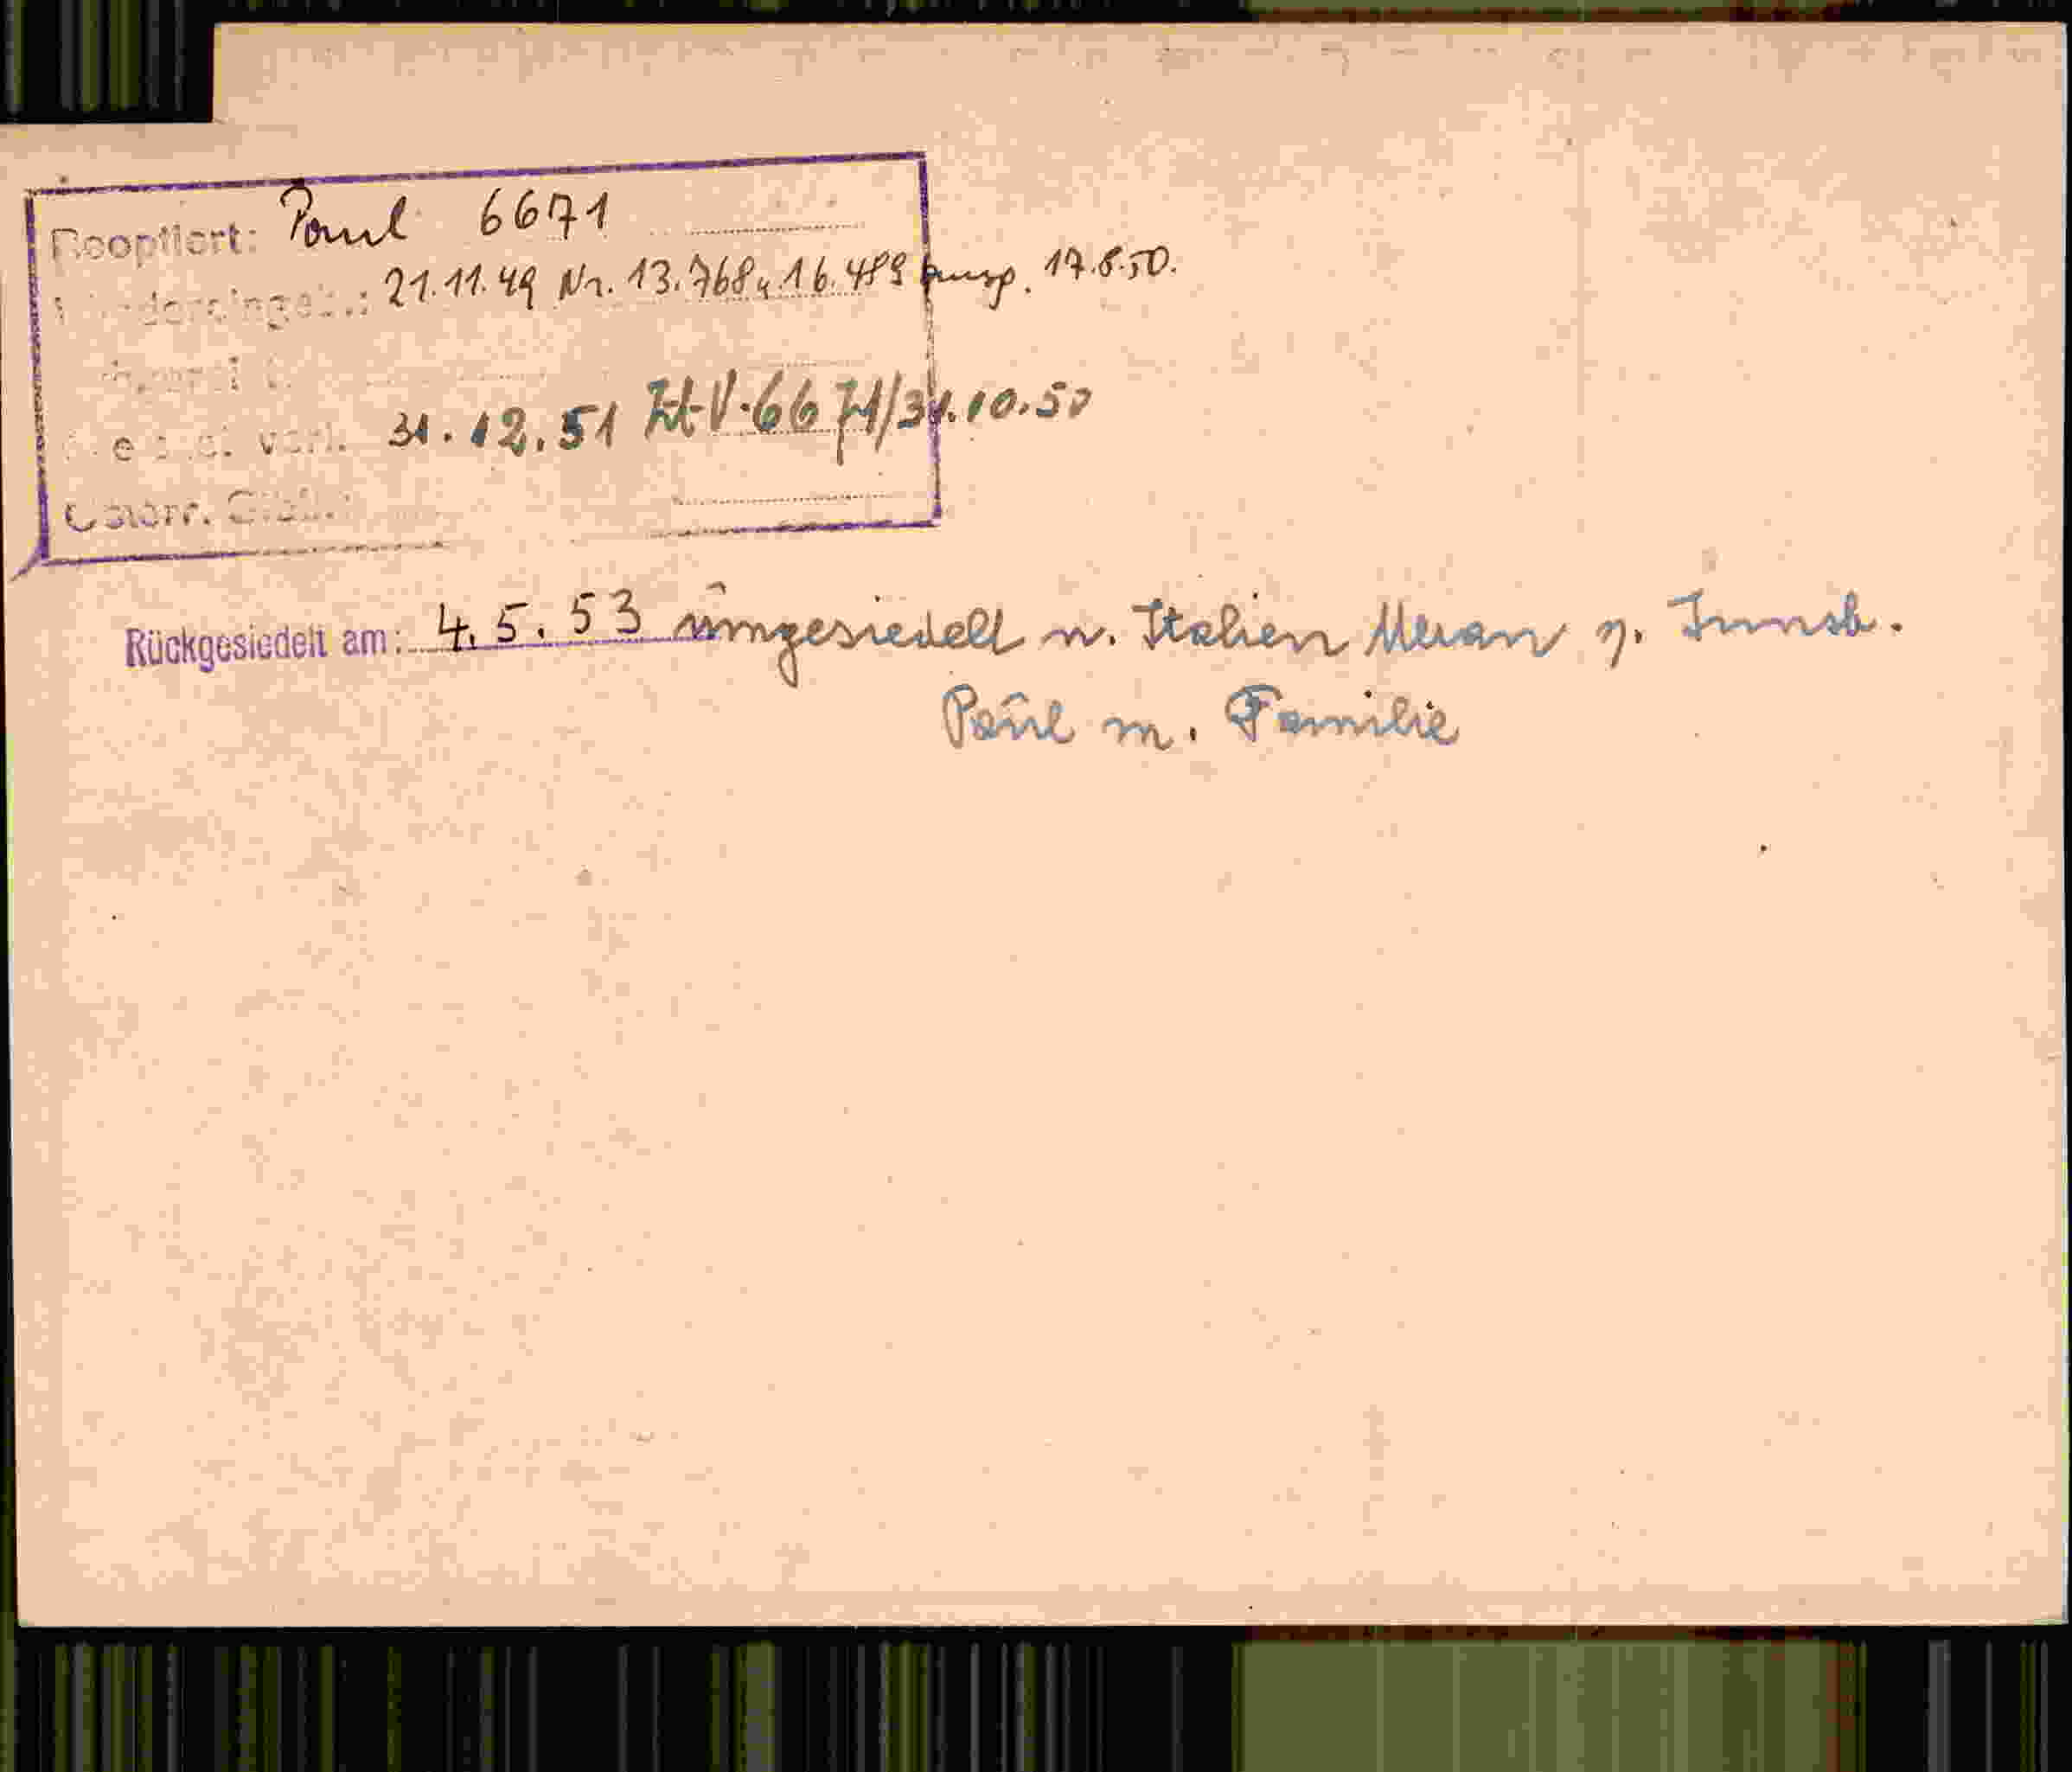 Reoptiert: Paul 6671
21.11.49 Nr. 13.768 u. 16.489 17.8.50.
verl. 31.12.51 6671/31.10.50
Österr.
Rückgesiedelt am: 4.5.53 umgesiedelt n. Italien Meran v. Innsb.
Paul m. Familie